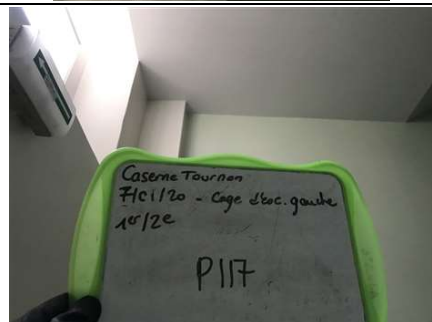 Caserne Tournon
7/01/20 - Cage d'esc. gauche
1er/2e
P117